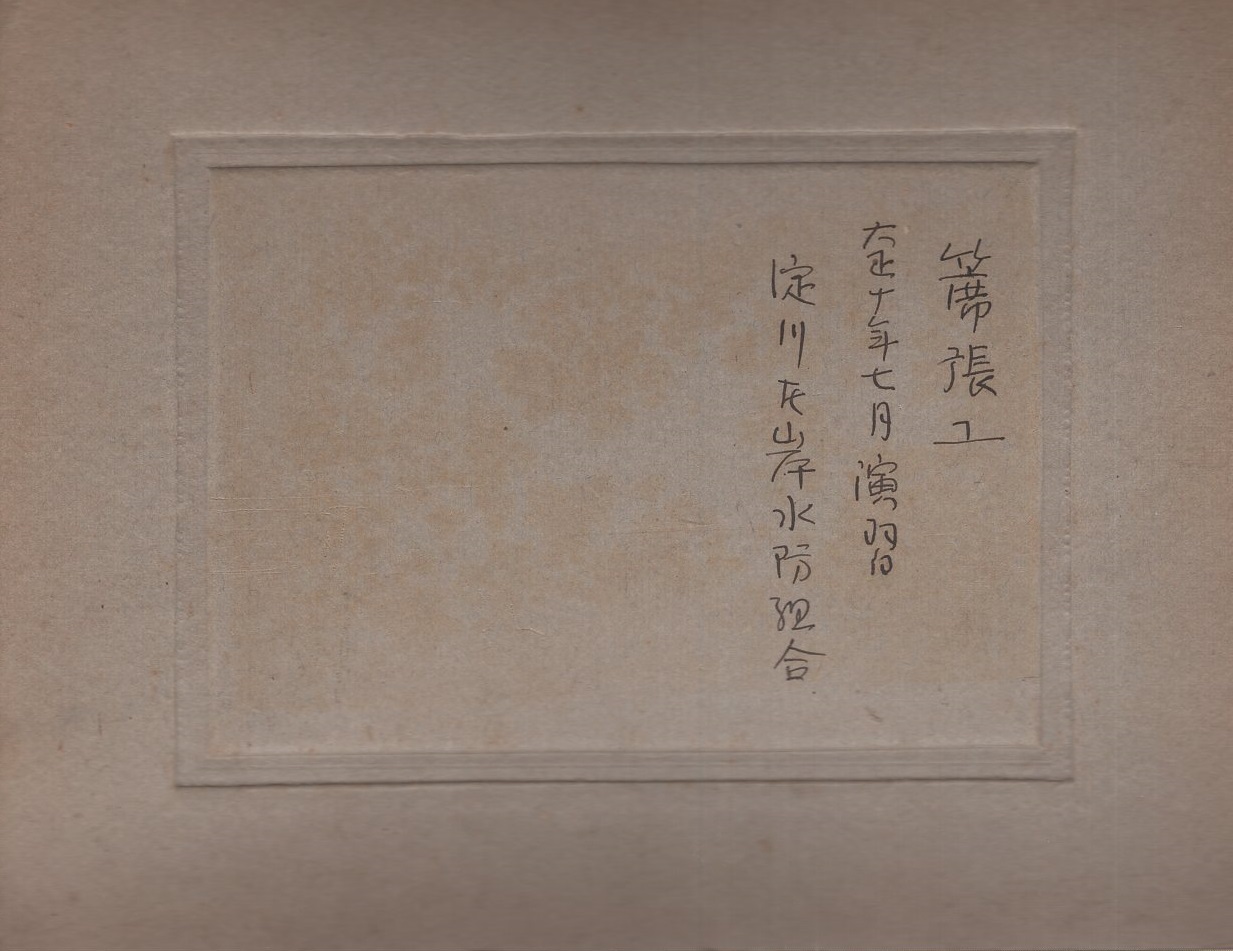 蓆張工
大正十年七月演習
淀川左岸水防組合